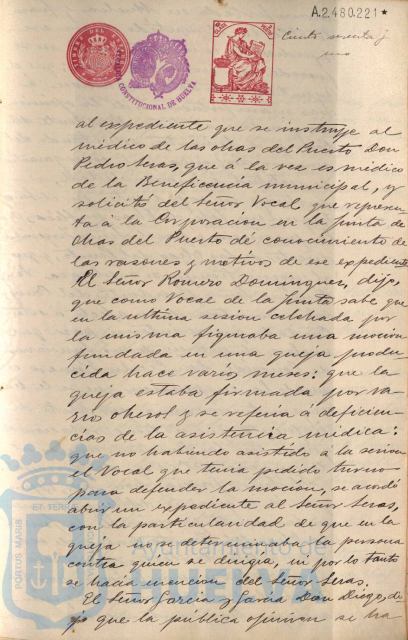 A.2.480.221★
Ciento sesenta y
uno
CONSTITUCIONAL DE HUELVA
al expediente que se instruye al
médico de las obras del Puerto Don
Pedro Seras, que á la vez es médico
de la Beneficencia municipal, y
solicitó del Señor Vocal que represen-
ta á la Corporacion en la Junta de
Obras del Puerto dé conocimiento de
las razones y motivos de ese expediente
El Señor Romero Dominguez, dijo
que como Vocal de la Junta sabe que
en la última sesion celebrada por
la misma figuraba una mocion
fundada en una queja produ-
cida hace varios meses: que la
queja estaba firmada por va-
rios obreros y se referia á deficien-
cias de la asistencia médica:
que no habiendo asistido á la sesion
el Vocal que tenia pedido turno
para defender la mocion, se acordó
abrir un expediente al Señor Seras,
con la particularidad de que en la
queja no se determinaba la persona
contra quien se dirigia, ni por lo tanto
se hacia mencion del Señor Seras.
El Señor Garcia y Garcia Don Diego, di-
jo que la pública opinion se ha
PORTUS MARIS
ET TERRÆ
Ayuntamiento de